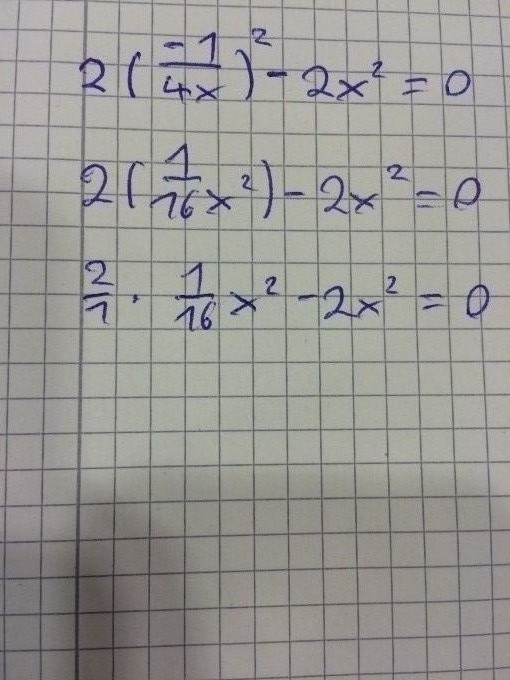 2(\frac{-1}{4x})^2 - 2x^2 = 0
2(\frac{1}{16}x^2) - 2x^2 = 0
\frac{2}{1} \cdot \frac{1}{16}x^2 - 2x^2 = 0